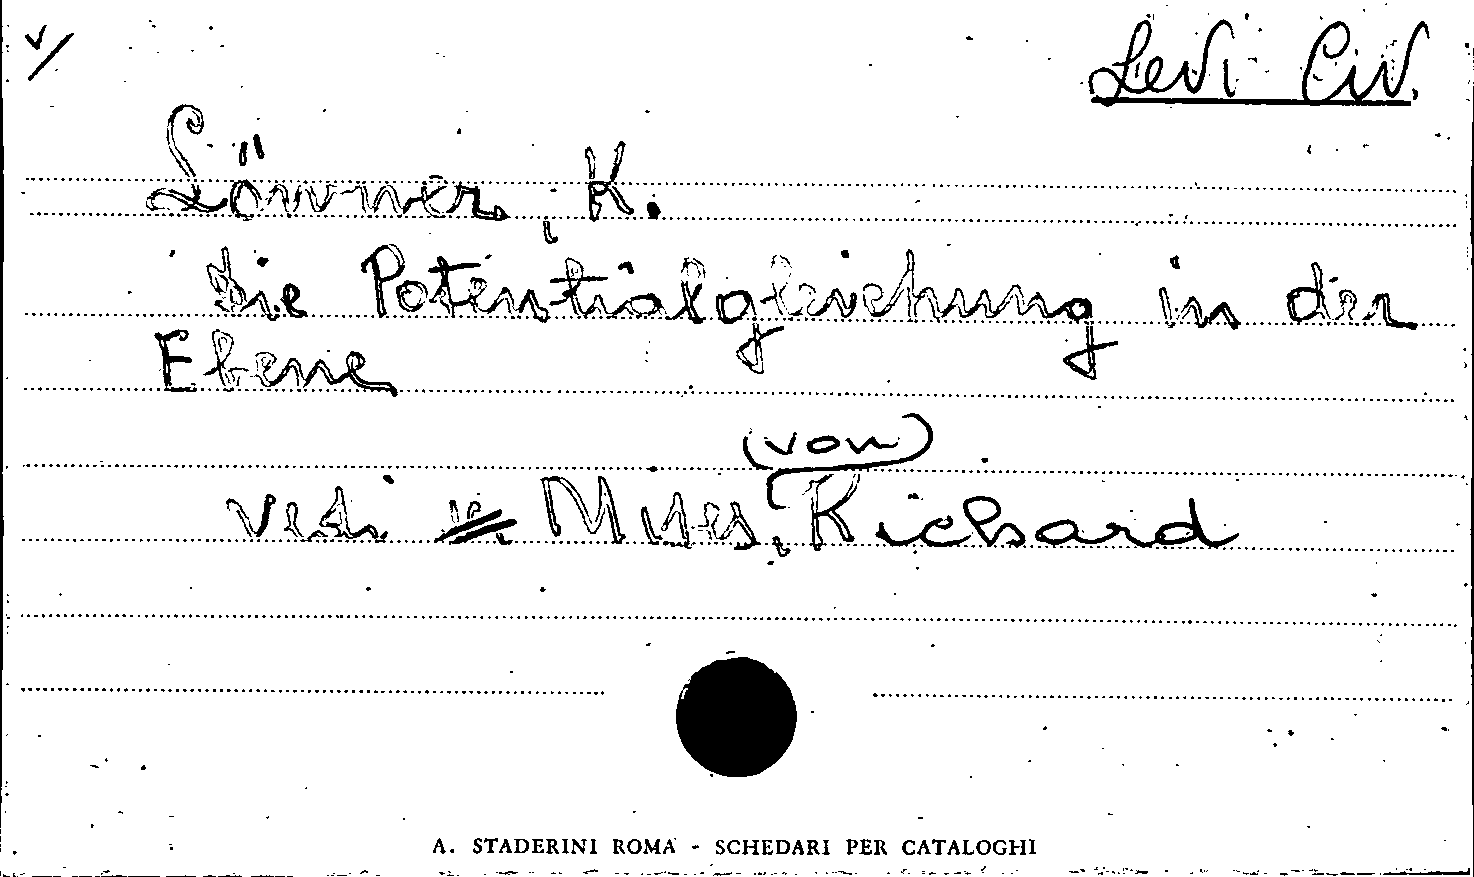 Levi Civ.
Löwner, K.
Die Potentialgleichung in der
Ebene
(von)
vedi Mises, Richard
A. STADERINI ROMA - SCHEDARI PER CATALOGHI